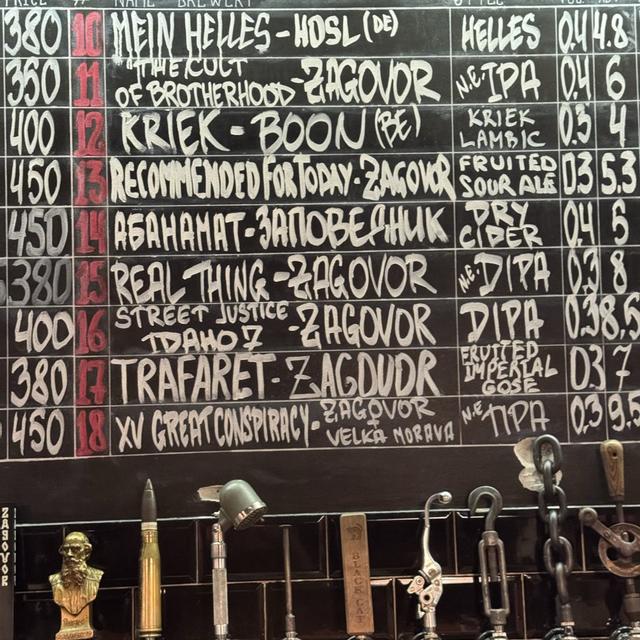 PRICE # NAME BREWERY STYLE VOL. ABV
380 10 MEIN HELLES - HDSL (DE) HELLES 0.4 4.8
350 11 "THE CULT
OF BROTHERHOOD - ZAGOVOR N.E. IPA 0.4 6
400 12 KRIEK - BOON (BE) KRIEK
LAMBIC 0.3 4
450 13 RECOMMENDED FOR TODAY - ZAGOVOR FRUITED
SOUR ALE 0.3 5.3
450 14 АБАНАМАТ - ЗАПОВЕДНИК DRY
CIDER 0.4 5
380 15 REAL THING - ZAGOVOR N.E. DIPA 0.3 8
400 16 STREET JUSTICE
IDAHO 7 - ZAGOVOR DIPA 0.3 8.5
380 17 TRAFARET - ZAGOVOR FRUITED
IMPERIAL
GOSE 0.3 7
450 18 XV GREAT CONSPIRACY - ZAGOVOR
+
VELKA MORAVA N.E. TIPA 0.3 9.5
ZAGOVOR
BLACK CAT